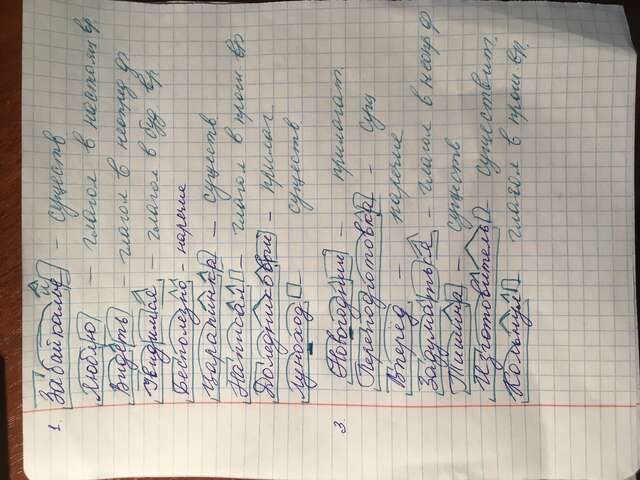 1. Забайкалье й – существ
Люблю – глагол в настоящ вр.
Видеть – глагол в неопред ф
Увидимся – глагол в буд. вр
Бесполезно - наречие
Царапинка – существ
Написал – глагол в прош. вр
Доледниковый – прилаг
Луноход – существ
3. Новогодний – прилагат.
Переподготовка – сущ
Вперёд – наречие
Задуматься – глагол в неопр ф
Тишина – существ
Изготовитель – существит.
Кольнул – глагол в прош. вр.